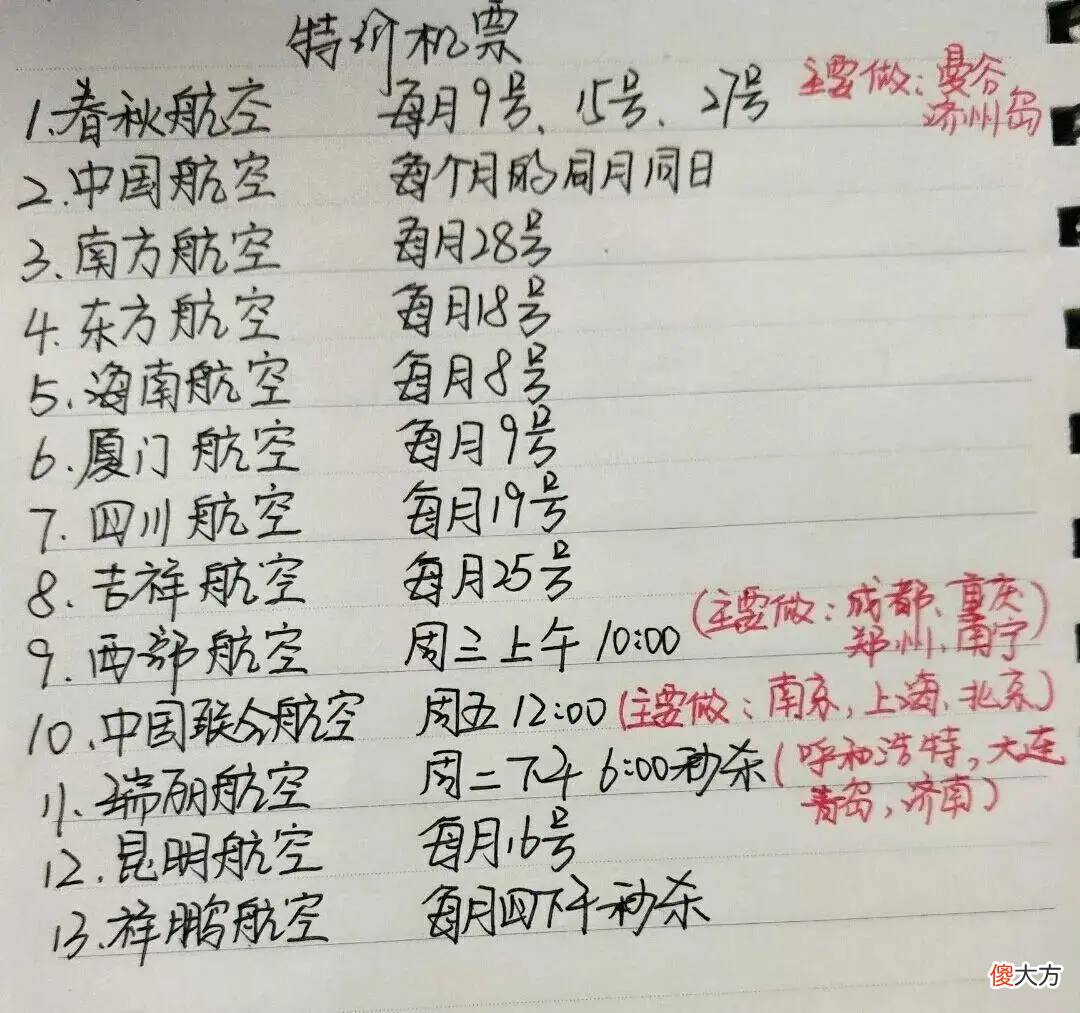 特价机票
1.春秋航空 每月9号、15号、27号 主要做:曼谷
济州岛
2.中国航空 每个月的同月同日
3.南方航空 每月28号
4.东方航空 每月18号
5.海南航空 每月8号
6.厦门航空 每月9号
7.四川航空 每月19号
8.吉祥航空 每月25号
9.西部航空 周三上午10:00 (主要做:成都、重庆
郑州、南宁)
10.中国联合航空 周五12:00 (主要做:南京,上海、北京)
11.瑞丽航空 周二下午6:00秒杀 (呼和浩特,大连
青岛,济南)
12.昆明航空 每月16号
13.祥鹏航空 每月四下午秒杀
傻大方